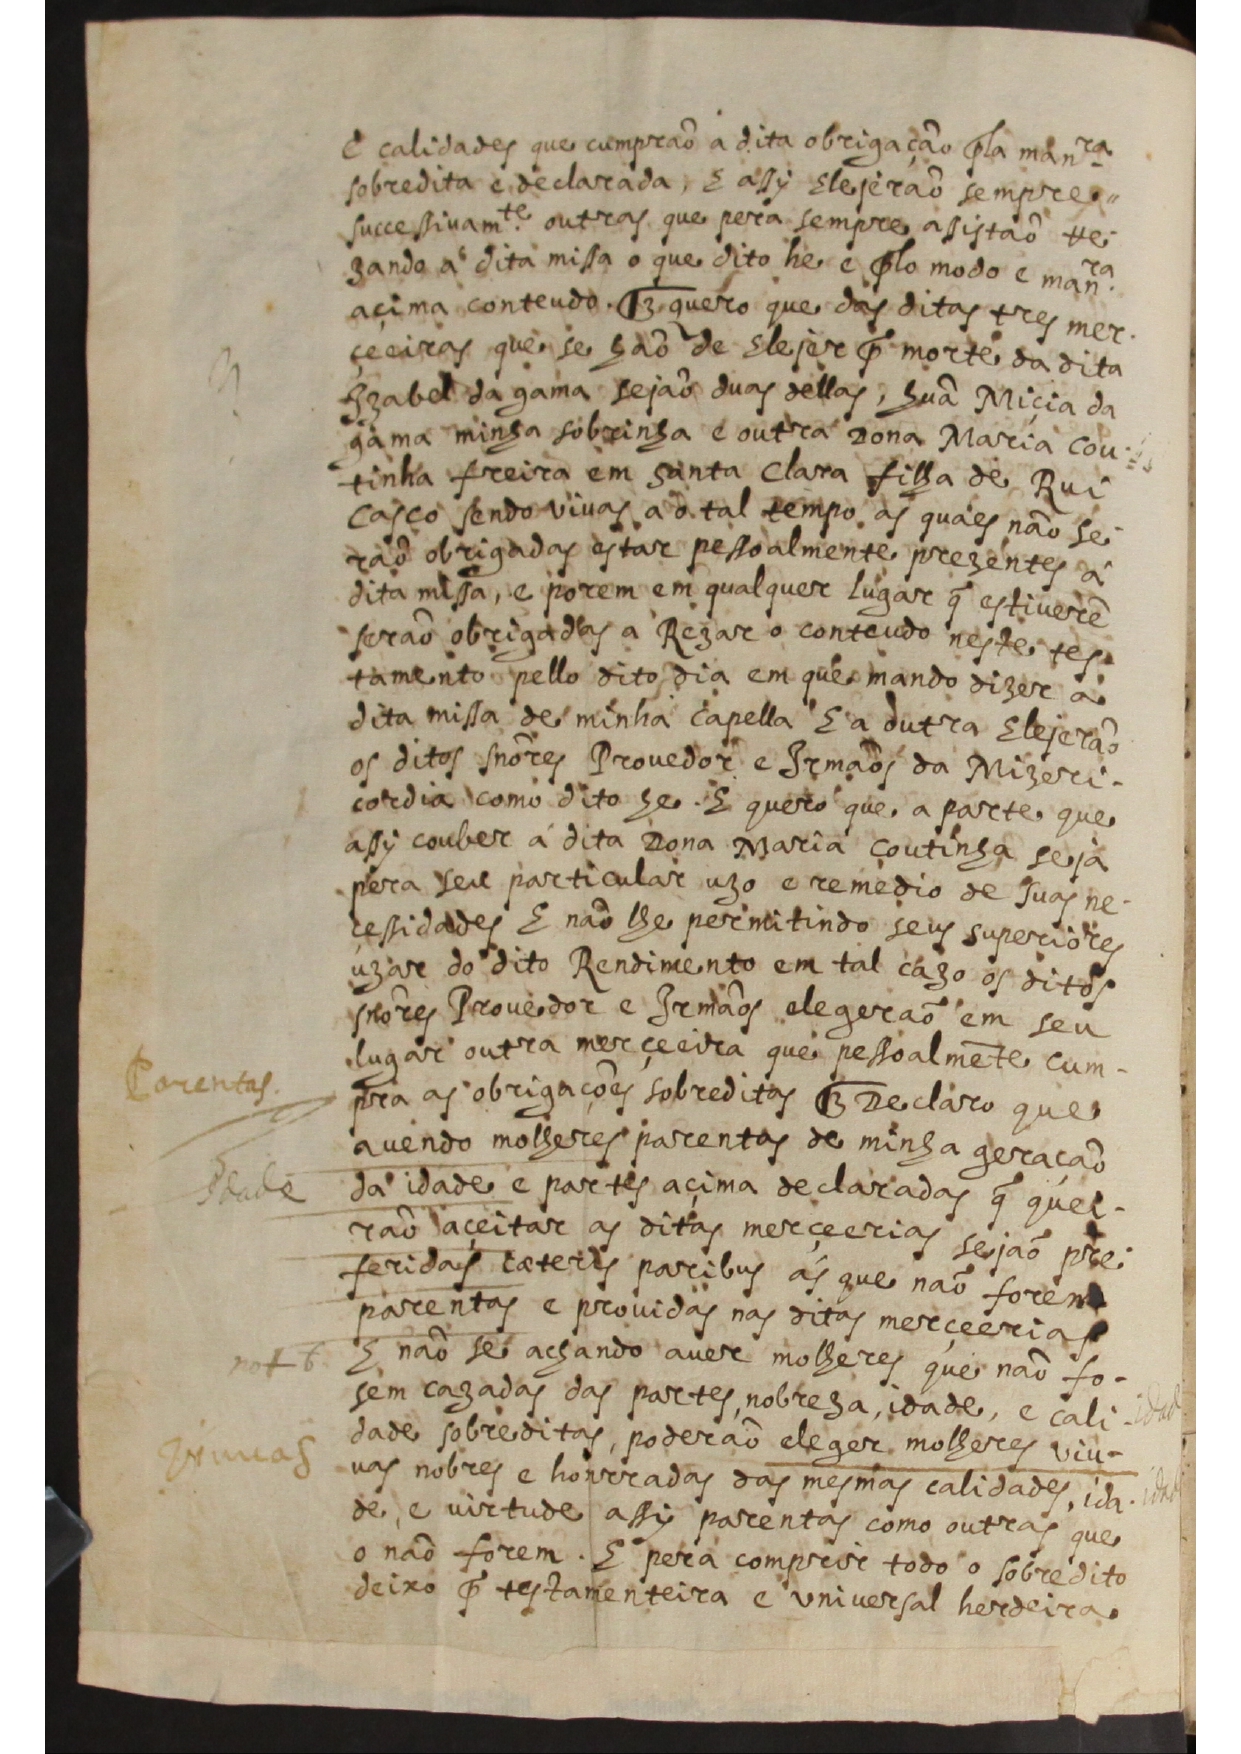 E calidades que cumpraõ a dita obrigação pla manra
sobredita e declarada, E assy Elejeraõ sempre
successivamte. outras que pera sempre assistaõ re
zando a dita missa o que dito he e plo modo e manra.
açima conteudo. E quero que das ditas tres mer-
çeeiras que se haõ de Elejer p morte da dita
Izabel da gama sejaõ duas dellas, huã Miçia da
gama minha sobrinha e outra Dona Maria Cou-
tinha freira em Santa Clara filha de Rui
Casco sendo vivas ao tal tempo as quaes naõ se
raõ obrigadas estar pessoalmente prezentes á
dita missa, e porem em qualquer lugar q̃ estiverẽ
seraõ obrigadas a Rezar o conteudo neste tes-
tamento pello dito dia em que mando dizer a
dita missa de minha Capella E a outra Elejeraõ
os ditos snõres Provedor e Irmaõs da Mizeri-
cordia como dito he. E quero que a parte que
assy couber á dita Dona Maria Coutinha seja
pera seu particular uzo e remedio de suas ne-
cessidades E naõ lhe permitindo seus superiores
uzar do dito Rendimento em tal cazo os ditos
snõres Provedor e Irmaõs elegeraõ em seu
lugar outra merçeeira que pessoalmẽte cum-
pra as obrigações sobreditas E Declaro que
avendo molheres parentas de minha geraçaõ
da idade e partes açima declaradas q̃ quei-
raõ açeitar as ditas merçeerias sejaõ pre
feridas cæteris paribus ás que naõ forem
parentas e providas nas ditas merçeerias
E naõ se achando aver molheres que naõ fo-
sem cazadas das partes, nobreza, idade, e cali-
dade sobreditas, poderaõ eleger molheres viu-
vas nobres e honrradas das mesmas calidades, ida-
de, e virtude assy parentas como outras que
o naõ forem. E pera comprir todo o sobredito
deixo p testamenteira e universal herdeira
Parentas.
Idade
not
viuvas
idad
idad